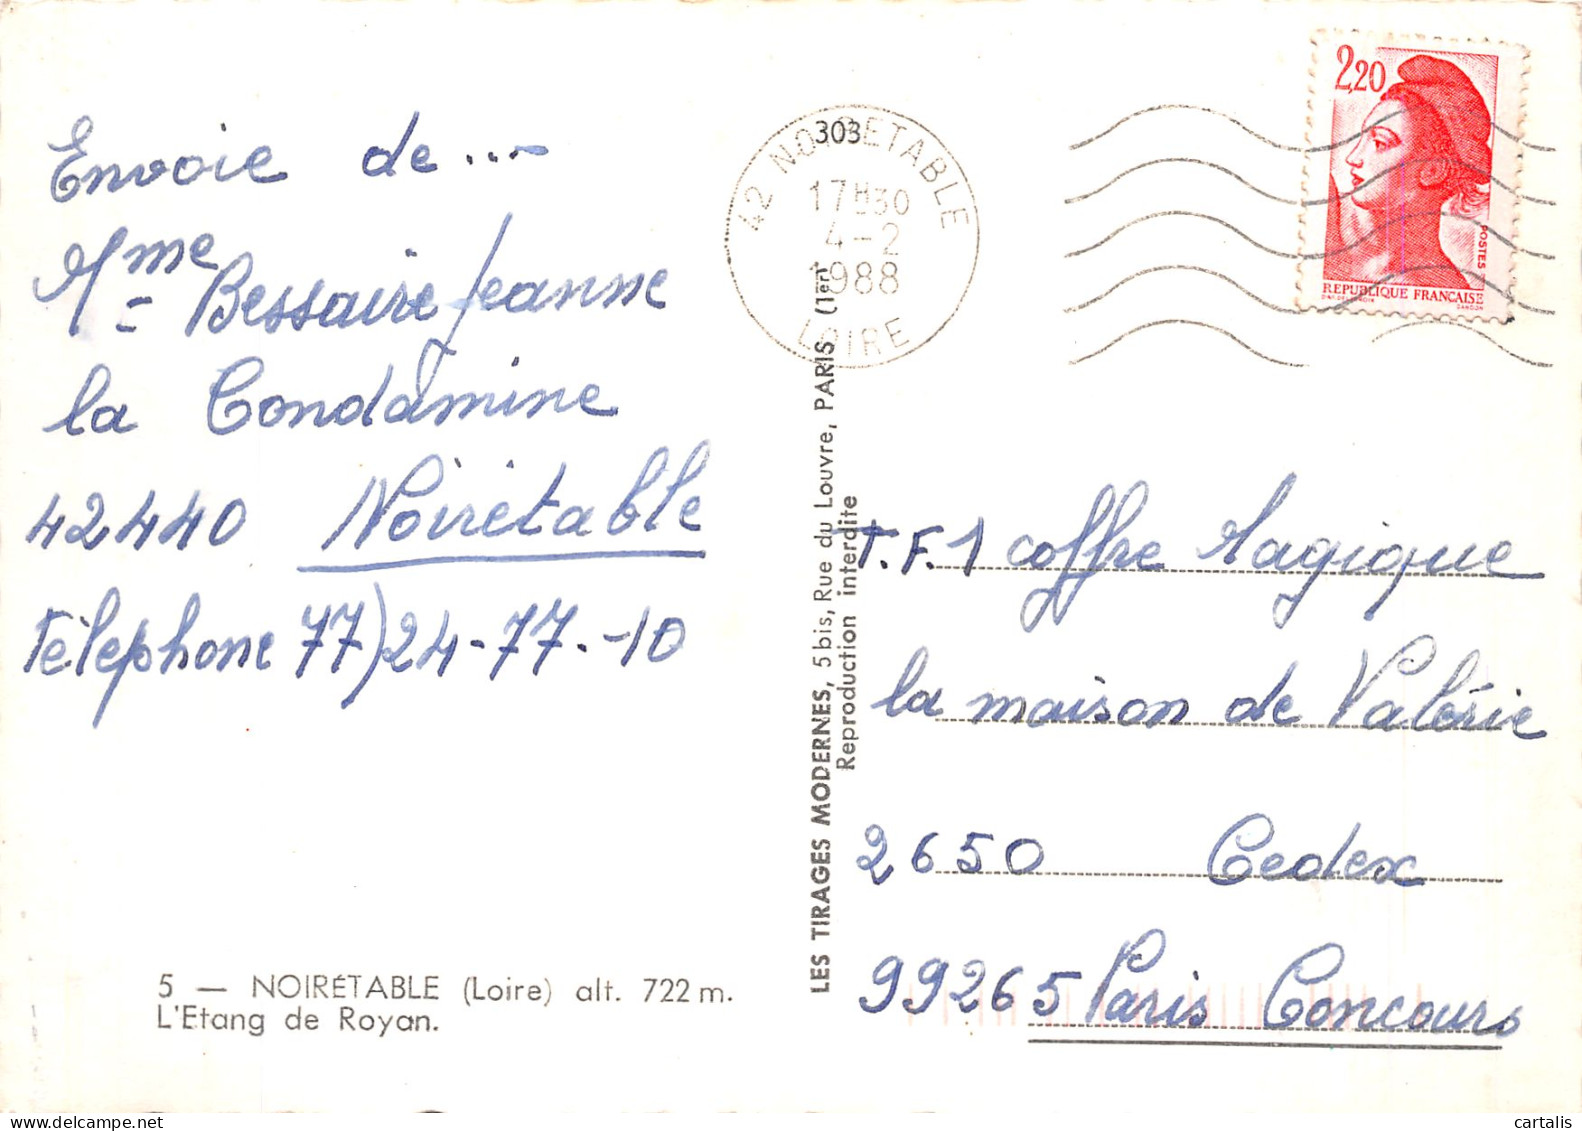 Envoie de ...-
Mme Bessaire Jeanne
la Condamine
42440 Noirétable
Téléphone 77)24-77.-10
5 — NOIRÉTABLE (Loire) alt. 722 m.
L'Etang de Royan.
LES TIRAGES MODERNES, 5 bis, Rue du Louvre, PARIS (1er)
Reproduction interdite
303
42 NOIRETABLE
17H30
4-2
1988
LOIRE
2,20
POSTES
REPUBLIQUE FRANÇAISE
GANDON
T.F.1 coffre Magique
la maison de Valérie
2650 Cedex
99265 Paris Concours
cartalis